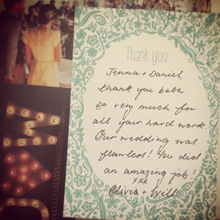 Thank you
Jenna + Daniel
thank you both
so very much for
all your hard work
Our wedding was
flawless! You did
an amazing job!
xxx
Olivia + Will
M